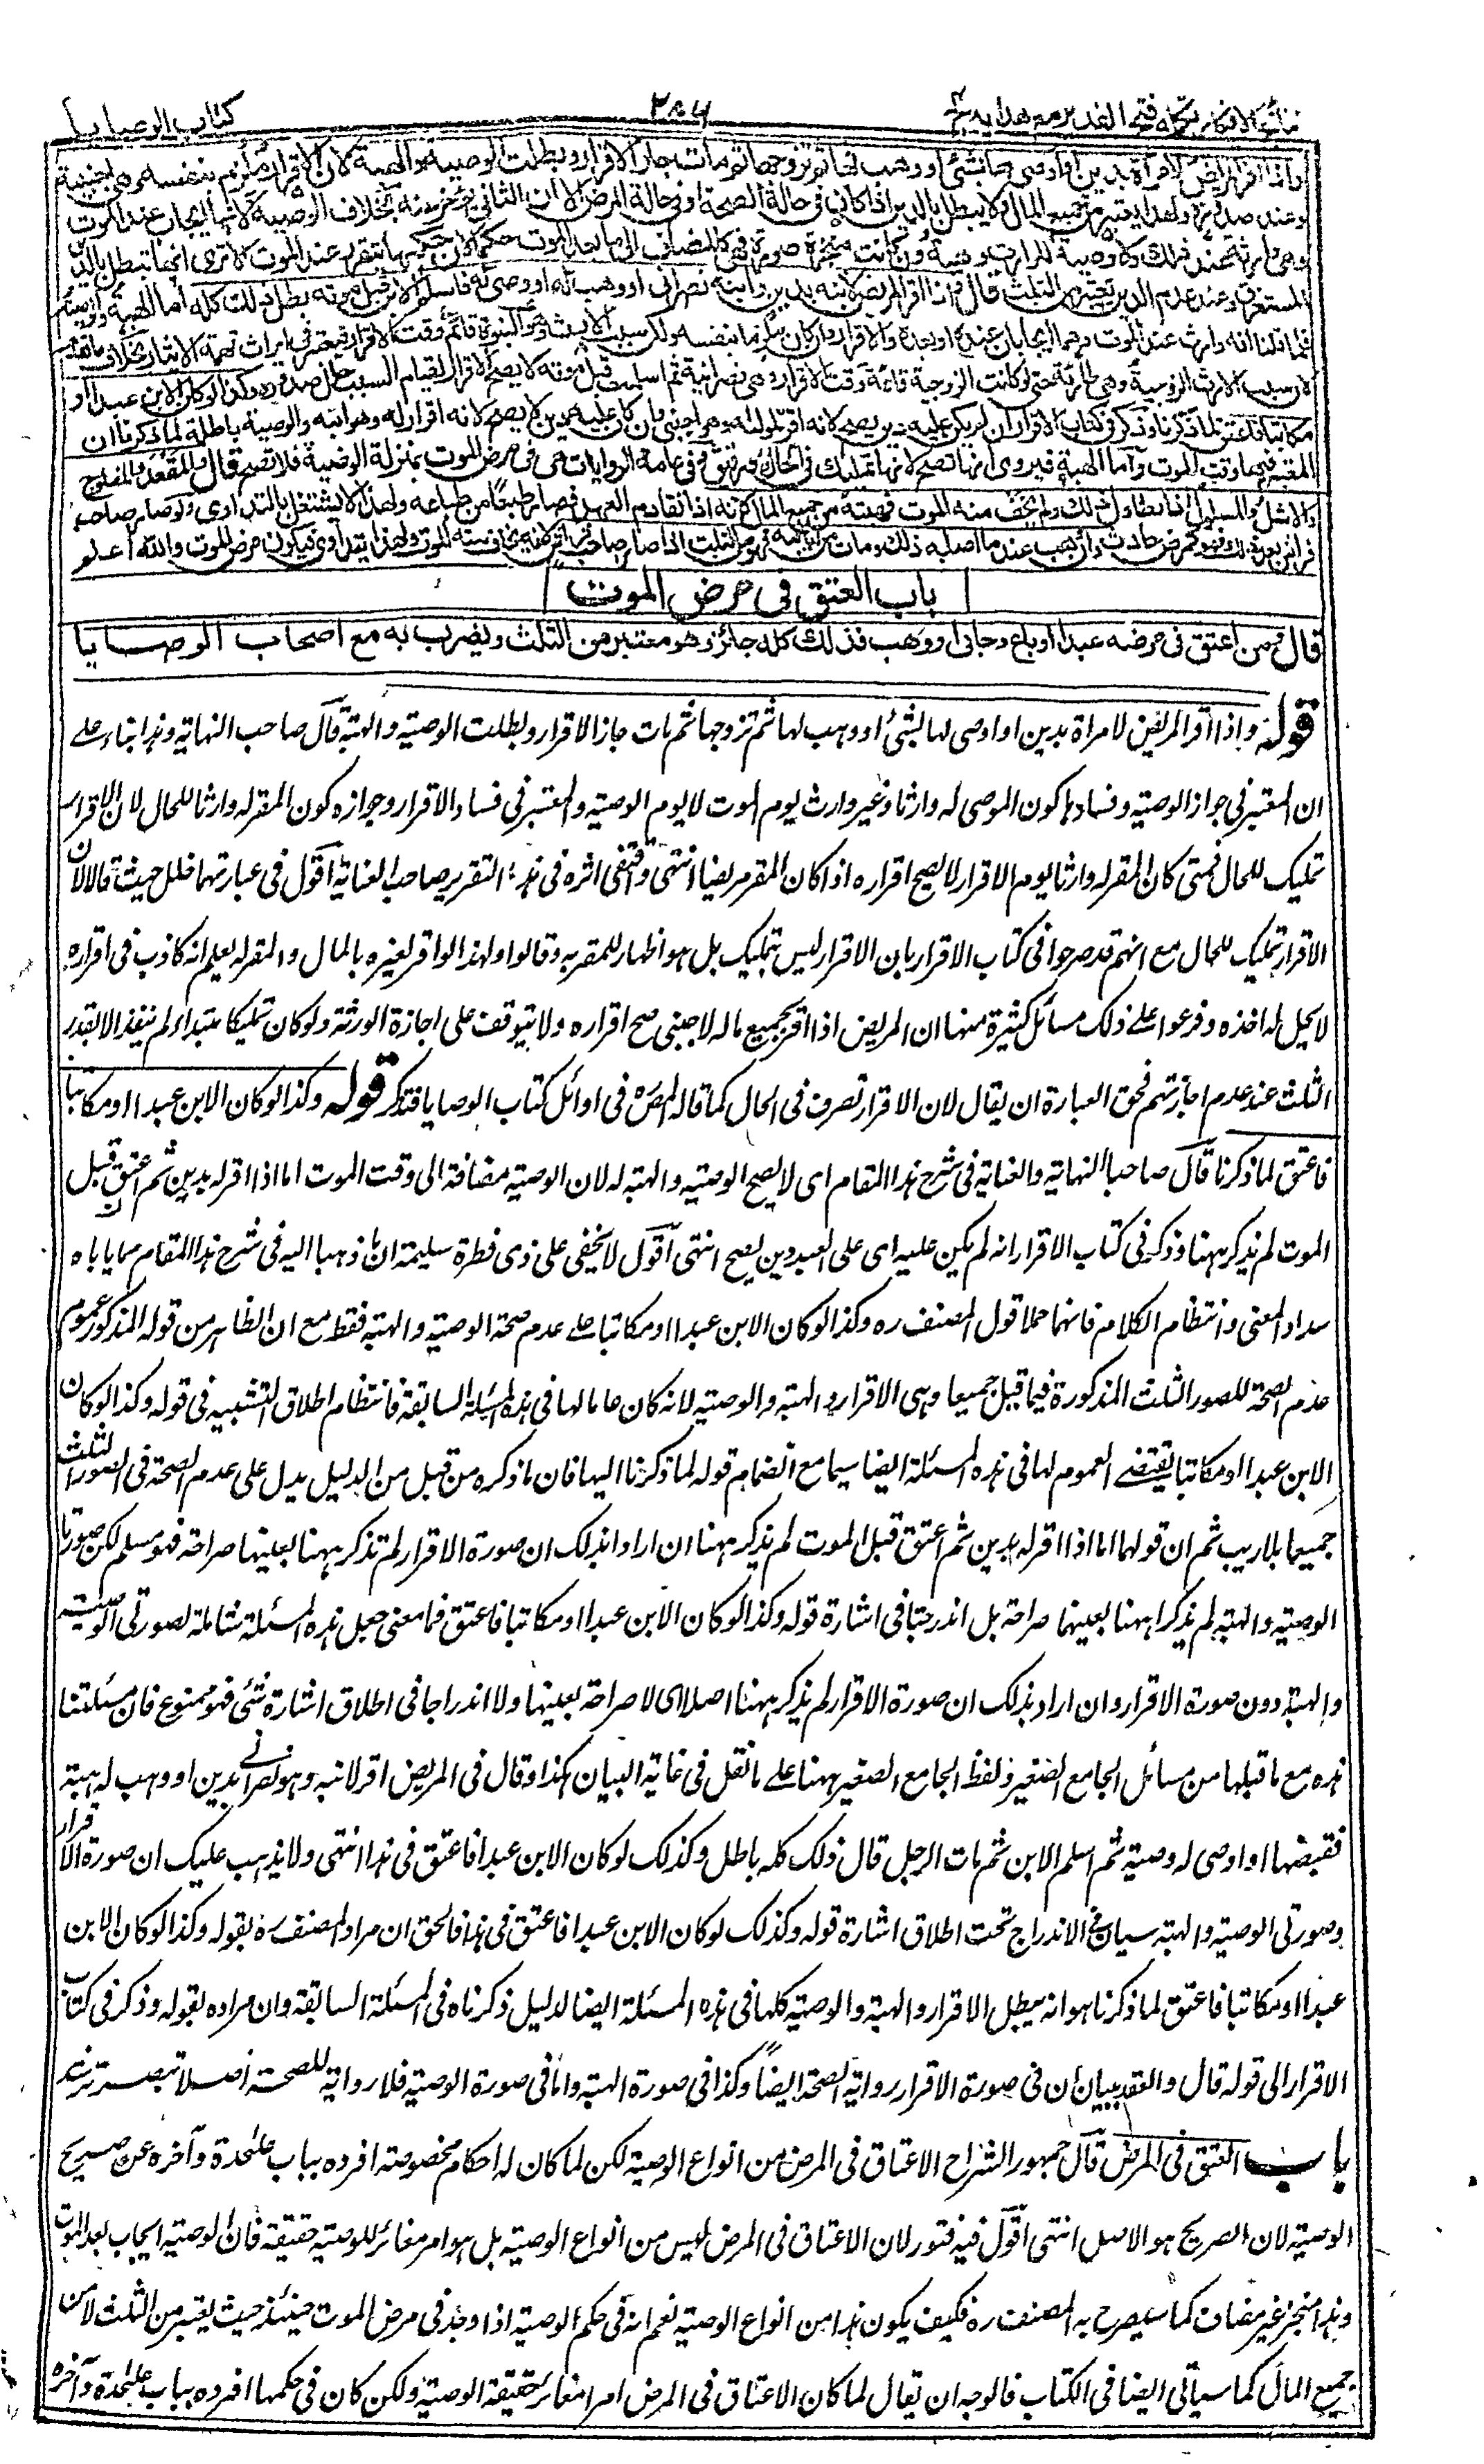 نتائج الافكار تكملة فتح القدير مع هدايه ج ٤ ٢٨٦ كتاب الوصايا
واذا اقر المريض لامرأة بدين او اوصى لها بشئ او وهب لها ثم تزوجها ثم مات جاز الاقرار وبطلت الوصية والهبة لان الاقرار ملزم بنفسه وهي اجنبية
عند صدوره ولهذا يعتبر من جميع المال ولا يبطل بالدين اذا كان في حالة الصحة او في حالة المرض الا ان الثاني يؤخر عنه بخلاف الوصية لانها ايجاب عند الموت
وهي وارثة عند ذلك ولا وصية للوارث والهبة وان كانت منجزة صورة فهي كالمضاف الى ما بعد الموت حكما لان حكمها يتقرر عند الموت الا ترى انها تبطل بالدين
المستغرق وعند عدم الدين يعتبر من الثلث قال واذا اقر المريض لابنه بدين وابنه نصراني او وهب له او وصى له فاسلم الابن قبل موته بطل ذلك كله اما الهبة والوصية
فلما قلنا انه وارث عند الموت وهما ايجابان عنده او بعده والاقرار وان كان ملزما بنفسه ولكن سبب الارث وهو البنوة قائم وقت الاقرار فيعتبر في ايراث تهمة الايثار بخلاف ما تقدم
لان سبب الارث الزوجية وهي طارئة حتى لو كانت الزوجية قائمة وقت الاقرار وهي نصرانية ثم اسلمت قبل موته لا يصح الاقرار لقيام السبب حال صدوره وكذا لو كان الابن عبدا او
مكاتبا فاعتق لما ذكرنا وذكر في كتاب الاقرار ان لم يكن عليه دين يصح لانه اقر لمولاه وهو اجنبي وان كان عليه دين لا يصح لانه اقرار له وهو ابنه والوصية باطلة لما ذكرنا ان
المعتبر فيها وقت الموت وأما الهبة فيروى انها تصح لانها تمليك في الحال وهو رقيق وفي عامة الروايات هي في مرض الموت بمنزلة الوصية فلا تصح قال والمقعد والمفلوج
والاشل والمسلول اذا تطاول ذلك ولم يخف منه الموت فهبته من جميع المال لانه اذا تقادم العهد فصار طبعا من طباعه ولهذا لا يشتغل بالتداوى ولو صار صاحب
فراش بعد ذلك فهو كمرض حادث وان وهب عند ما اصابه ذلك ومات من ايامه فهو من الثلث اذا صار صاحب فراش لانه يخاف منه الموت ولهذا يتداوى فيكون مرض الموت والله اعلم
باب العتق في مرض الموت
قال ومن اعتق في مرضه عبدا او باع وحابى او وهب فذلك كله جائز وهو معتبر من الثلث ويضرب به مع اصحاب الوصايا
قوله واذا اقر المريض لامرأة بدين او اوصى لها بشئ او وهب لها ثم تزوجها ثم مات جاز الاقرار وبطلت الوصية والهبة قال صاحب النهاية وهذا بناء على
ان المعتبر في جواز الوصية وفسادها كون الموصى له وارثا وغير وارث يوم الموت لا يوم الوصية والمعتبر في فساد الاقرار وجوازه كون المقر له وارثا للحال لان الاقرار
تمليك للحال فمتى كان المقر له وارثا يوم الاقرار لا يصح اقراره اذا كان المقر مريضا انتهى واقتفى اثره في هذا التقرير صاحب العناية اقول في عبارتهما خلل حيث قالا لان
الاقرار تمليك للحال مع انهم قد صرحوا في كتاب الاقرار بان الاقرار ليس بتمليك بل هو اظهار للمقر به وقالوا ولهذا لو اقر لغيره بالمال والمقر له يعلم انه كاذب في اقراره
لا يحل له اخذه وفرعوا على ذلك مسائل كثيرة منها ان المريض اذا اقر بجميع ماله لاجنبي صح اقراره ولا يتوقف على اجازة الورثة ولو كان تمليكا مبتداء لم ينفذ الا بقدر
الثلث عند عدم اجازتهم فحق العبارة ان يقال لان الاقرار تصرف في الحال كما قاله المص ره في اوائل كتاب الوصايا فتذكر قوله وكذا لو كان الابن عبدا او مكاتبا
فاعتق لما ذكرنا قال صاحبا النهاية والعناية في شرح هذا المقام اى لا يصح الوصية والهبة له لان الوصية مضافة الى وقت الموت اما اذا اقر له بدين ثم اعتق الاب قبل
الموت لم يذكر ههنا وذكر في كتاب الاقرار انه لم يكن عليه اى على العبد دين يصح انتهى اقول لا يخفى على ذى فطرة سليمة ان ما ذهبا اليه في شرح هذا المقام مما ياباه
سداد المعنى وانتظام الكلام فانهما حملا قول المصنف ره وكذا لو كان الابن عبدا او مكاتبا على عدم صحة الوصية والهبة فقط مع ان الظاهر من قوله المذكور عموم
عدم الصحة للصور الثلث المذكورة فيما قبل جميعا وهى الاقرار والهبة والوصية لانه كان عاما لها في هذه المسئلة السابقة فانتظام اطلاق التشبيه في قوله وكذا لو كان
الابن عبدا او مكاتبا يقتضى العموم لها في هذه المسئلة ايضا سيما مع انضمام قوله لما ذكرنا اليها فان ما ذكره من قبل من الدليل يدل على عدم الصحة في الصور الثلث
جميعا بلا ريب ثم ان قولهما اما اذا اقر له بدين ثم اعتق قبل الموت لم يذكر ههنا ان ارادا بذلك ان صورة الاقرار لم تذكر ههنا بعينها صراحة فهو مسلم لكن صورتا
الوصية والهبة لم يذكرا ههنا بعينهما صراحة بل اندرجتا في اشارة قوله وكذا لو كان الابن عبدا او مكاتبا فاعتق فما معنى جعل هذه المسئلة شاملة لصورتى الوصية
والهبة دون صورة الاقرار وان ارادا بذلك ان صورة الاقرار لم يذكر ههنا اصلا اى لا صراحة بعينها ولا اندراجا في اطلاق اشارة شئى فهو ممنوع فان مسئلتنا
هذه مع ما قبلها من مسائل الجامع الصغير ولفظ الجامع الصغير ههنا على ما نقل في غاية البيان هكذا وقال في المريض اقر لابنه وهو نصراني بدين او وهب له هبة
فقبضها او اوصى له وصية ثم اسلم الابن ثم مات الرجل قال ذلك كله باطل وكذلك لو كان الابن عبدا فاعتق في هذا انتهى ولا يذهب عليك ان صورة الاقرار
وصورتى الوصية والهبة سيان في الاندراج تحت اطلاق اشارة قوله وكذلك لو كان الابن عبدا فاعتق في هذا فالحق ان مراد المصنف ره بقوله وكذا لو كان الابن
عبدا او مكاتبا فاعتق لما ذكرنا هو انه يبطل الاقرار والهبة والوصية كلها في هذه المسئلة ايضا لدليل ذكرناه في المسئلة السابقة وان مراده بقوله وذكر في كتاب
الاقرار الى قوله قال والمقعد بيان أن في صورة الاقرار رواية الصحة ايضاً وكذا في صورة الهبة واما في صورة الوصية فلا رواية للصحة اصلا تبصر ترشد
باب العتق في المرض قال جمهور الشراح الاعتاق في المرض من انواع الوصية لكن لما كان له احكام مخصوصة افرده بباب علىحدة وآخره عن صريح
الوصية لان الصريح هو الاصل انتهى اقول فيه فتور لان الاعتاق في المرض ليس من انواع الوصية بل هو امر مغائر للوصية حقيقة فان الوصية ايجاب بعد الموت
وهذا منجز غير مضاف كما سيصرح به المصنف ره فكيف يكون هذا من انواع الوصية نعم انه في حكم الوصية اذا وجد في مرض الموت حينئذ حيث يعتبر من الثلث لا من
جميع المال كما سيأتى ايضا في الكتاب فالوجه ان يقال لما كان الاعتاق في المرض امرا مغائرا لحقيقة الوصية ولكن كان في حكمها افرده بباب علىحدة وآخره